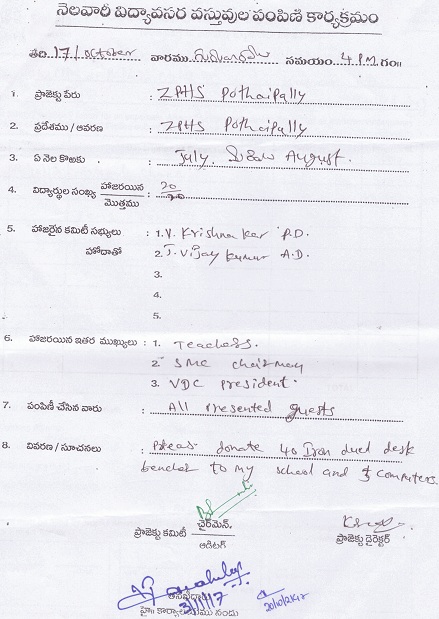 నెలవారీ విద్యావసర వస్తువుల పంపిణి కార్యక్రమం
తేది 17/ October వారము గురువారము సమయం 4 P.M. గం॥
1. ప్రాజెక్టు పేరు : ZPHS Pothaipally
2. ప్రదేశము / ఆవరణ : ZPHS Pothaipally
3. ఏ నెల కొఱకు : July, మరియు August.
4. విద్యార్థుల సంఖ్య హాజరయిన / మొత్తము : 20/20
5. హాజరైన కమిటీ సభ్యులు : 1. V. Krishna kar P.D.
హోదాతో 2. J. Vijay kumar A.D.
3.
4.
5.
6. హాజరయిన ఇతర ముఖ్యులు : 1. Teachers.
2. SMC chairman
3. VDC President.
7. పంపిణీ చేసిన వారు : All Presented guests
8. వివరణ / సూచనలు : donate 40 Iron duel desk
benches to my school and 5 Computers.
ప్రాజెక్టు కమిటీ చైర్మెన్ / ఆడిటర్ ప్రాజెక్టు డైరెక్టర్
3/11/17
హై॥ కార్యాలయము నందు